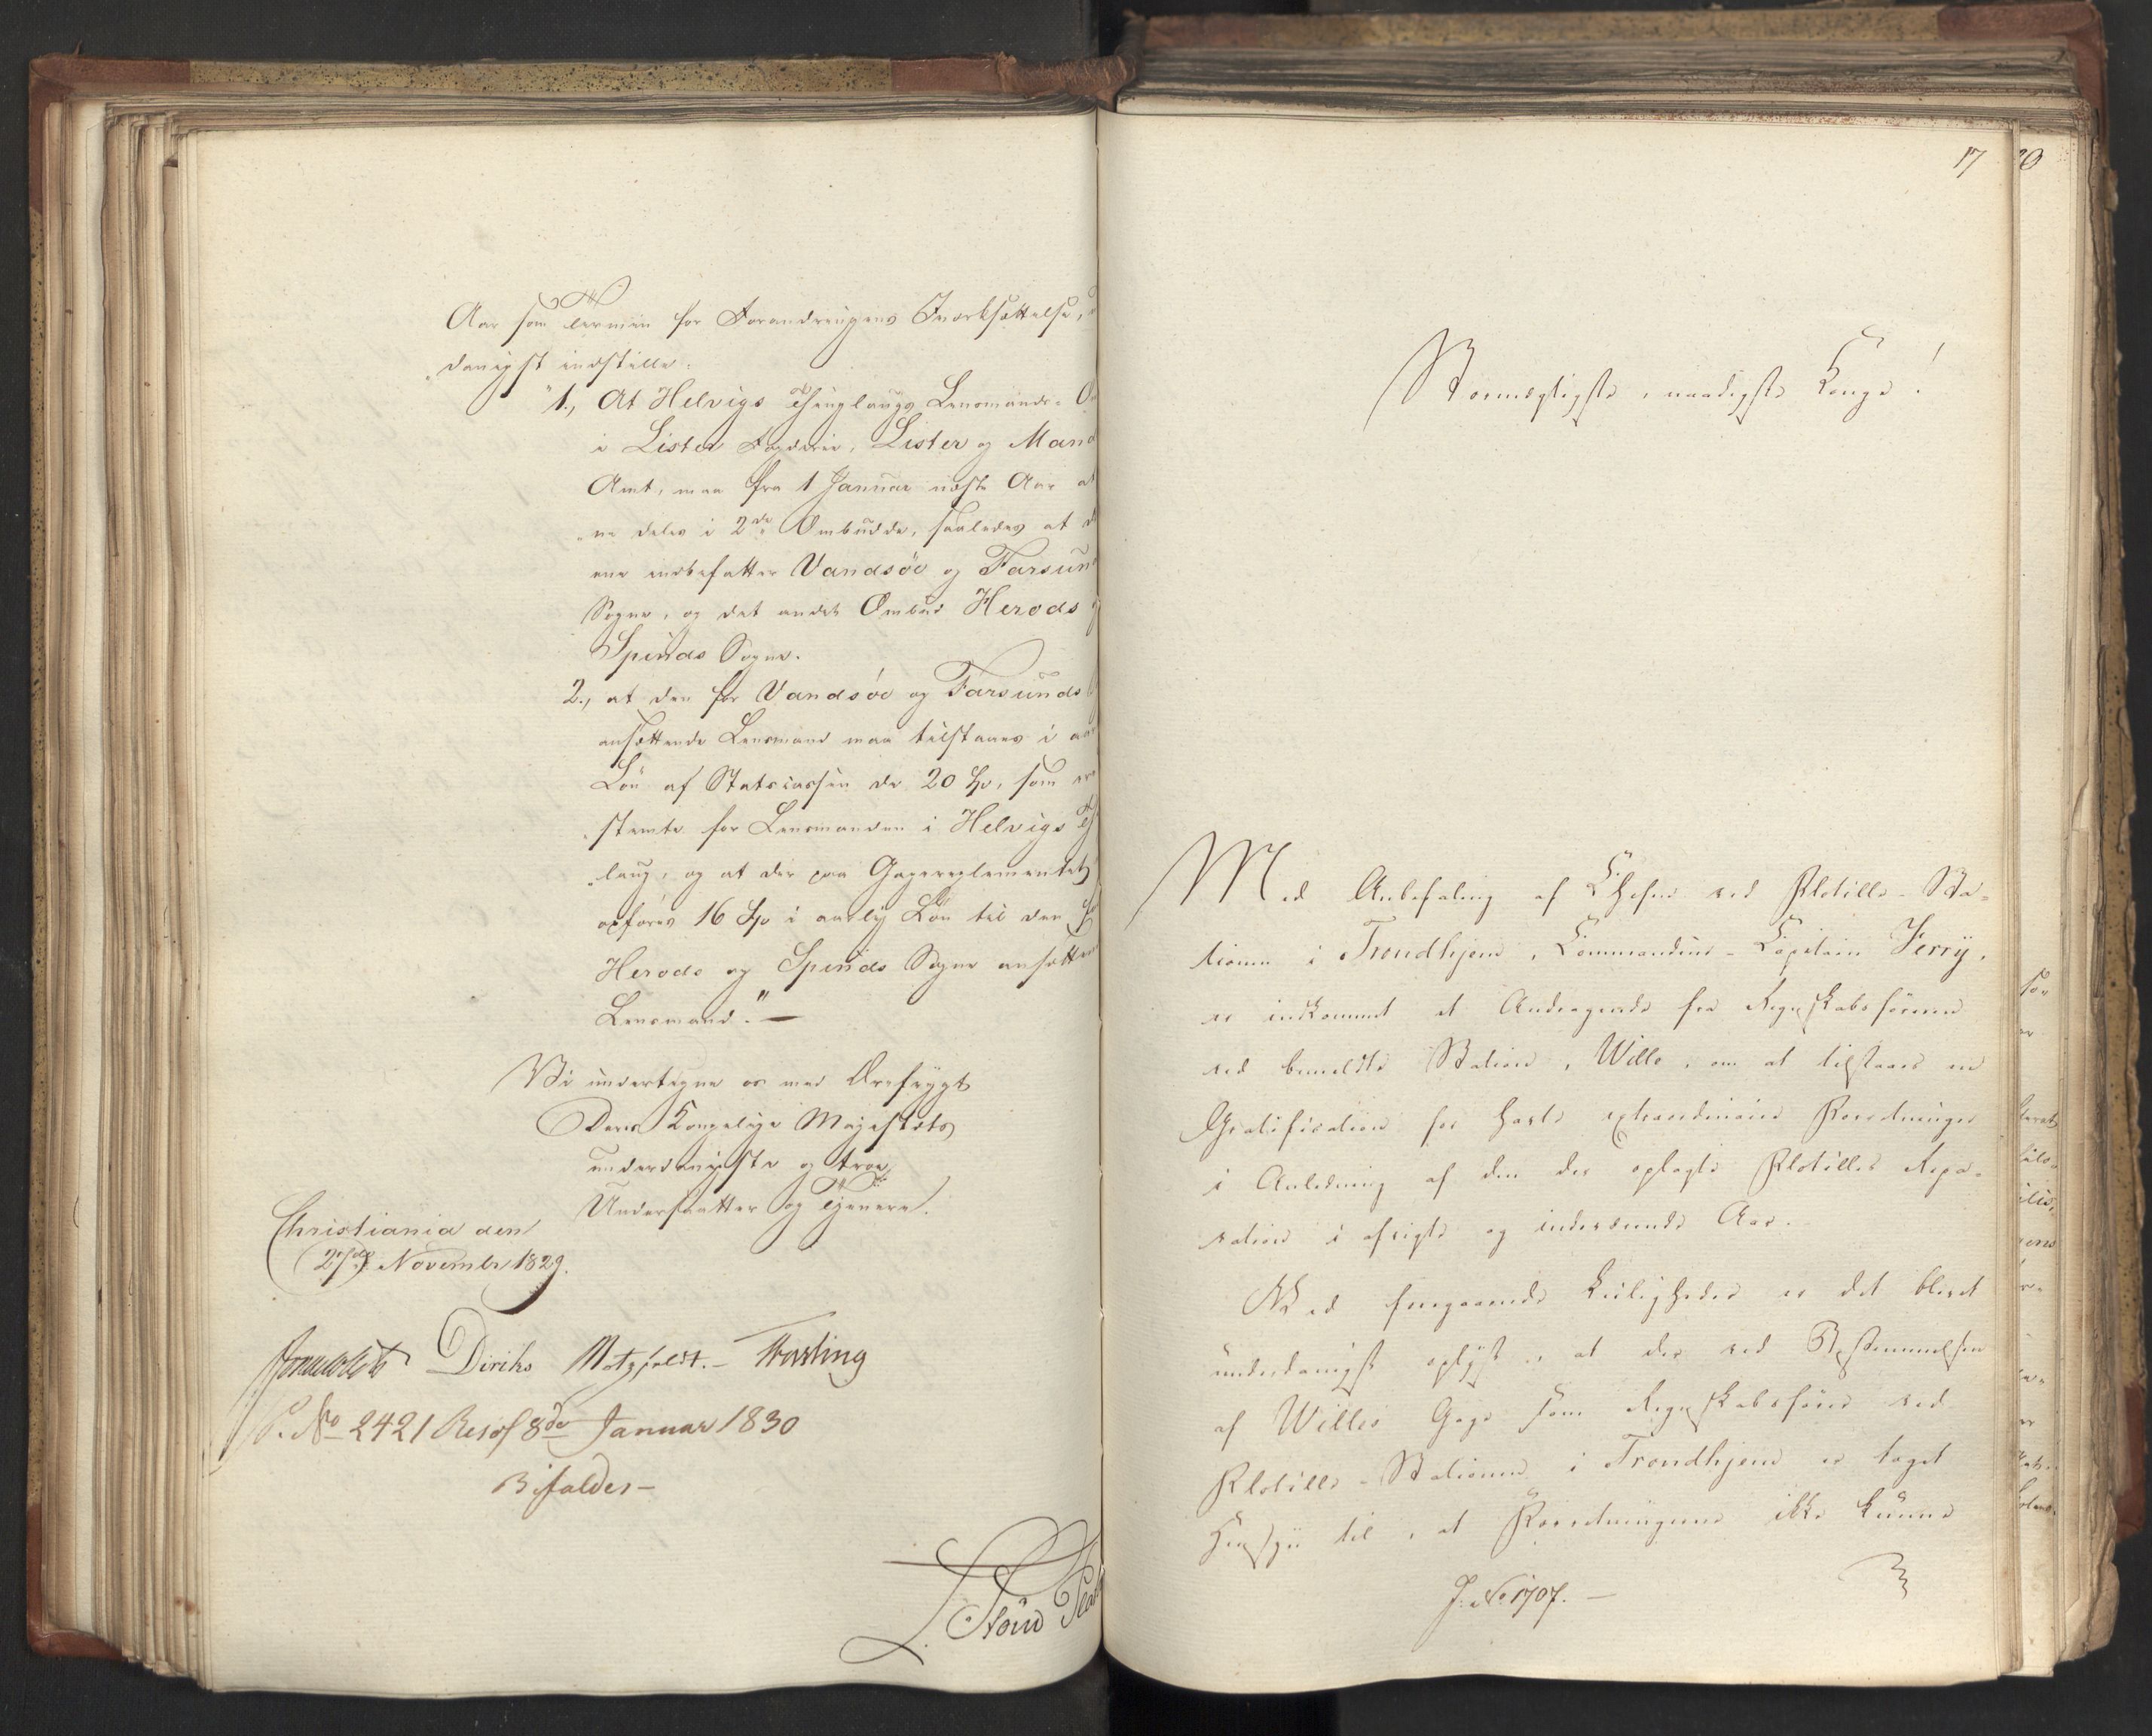 Aar som Termin for Forandringens Iværksættelse,
„danigst indstille:
"1., At Helvigs Thinglaugs Lensmands-
i Lister Fogderie, Lister og Mand
Amt, maa fra 1 Januar næste Aar at
„ne deles i 2de Ombudde, saaledes at d
ene indbefatter Vandsöe og Farsund
Sogne, og det andet Ombud Herods
Spinds Sogne.
2., at den for Vandsöe og Farsunds
ansættende Lensmand maa tilstaaes i aar
Lön af Statscassen de 20 Sp, som ere
„stemte for Lensmanden i Helvigs
„laug, og at der paa Gagereglementet
opföres 16 Sp i aarlig Lön til den for
Herods og Spinds Sogne ansætten
Lensmand." —
Vi undertegne os med Ærefrygt
Deres Kongelige Majestæts
underdanigste og troe
Undersaatter og Tjenere.
Christiania den
27de November 1829.
Diriks Motzfeldt. - Fasting
P. No 2421 Resol 8de Januar 1830
Bifaldes -
17
Stormægtigste, naadigste Konge!
Med Anbefaling af Chefen ved Flotille-Sta-
tionen i Trondhjem, Commandeur-Capitain Ferry,
er indkommet et Andragende fra Regnskabsföreren
ved bemeldte Station, Wille, om at tilstaaes en
Gratification for havte extraordinaire Forretninger
i Anledning af den der oplagte Flotilles Repa-
ration i afvigte og indeværende Aar.
Ved foregaaende Leiligheder er det blevet
underdanigst oplyst, at der ved Bestemmelsen
af Willes Gage som Regnskabsförer ved
Flotille-Stationen i Trondhjem er taget
Hensyn til, at Forretningerne ikke kunne
J. No 1707. —